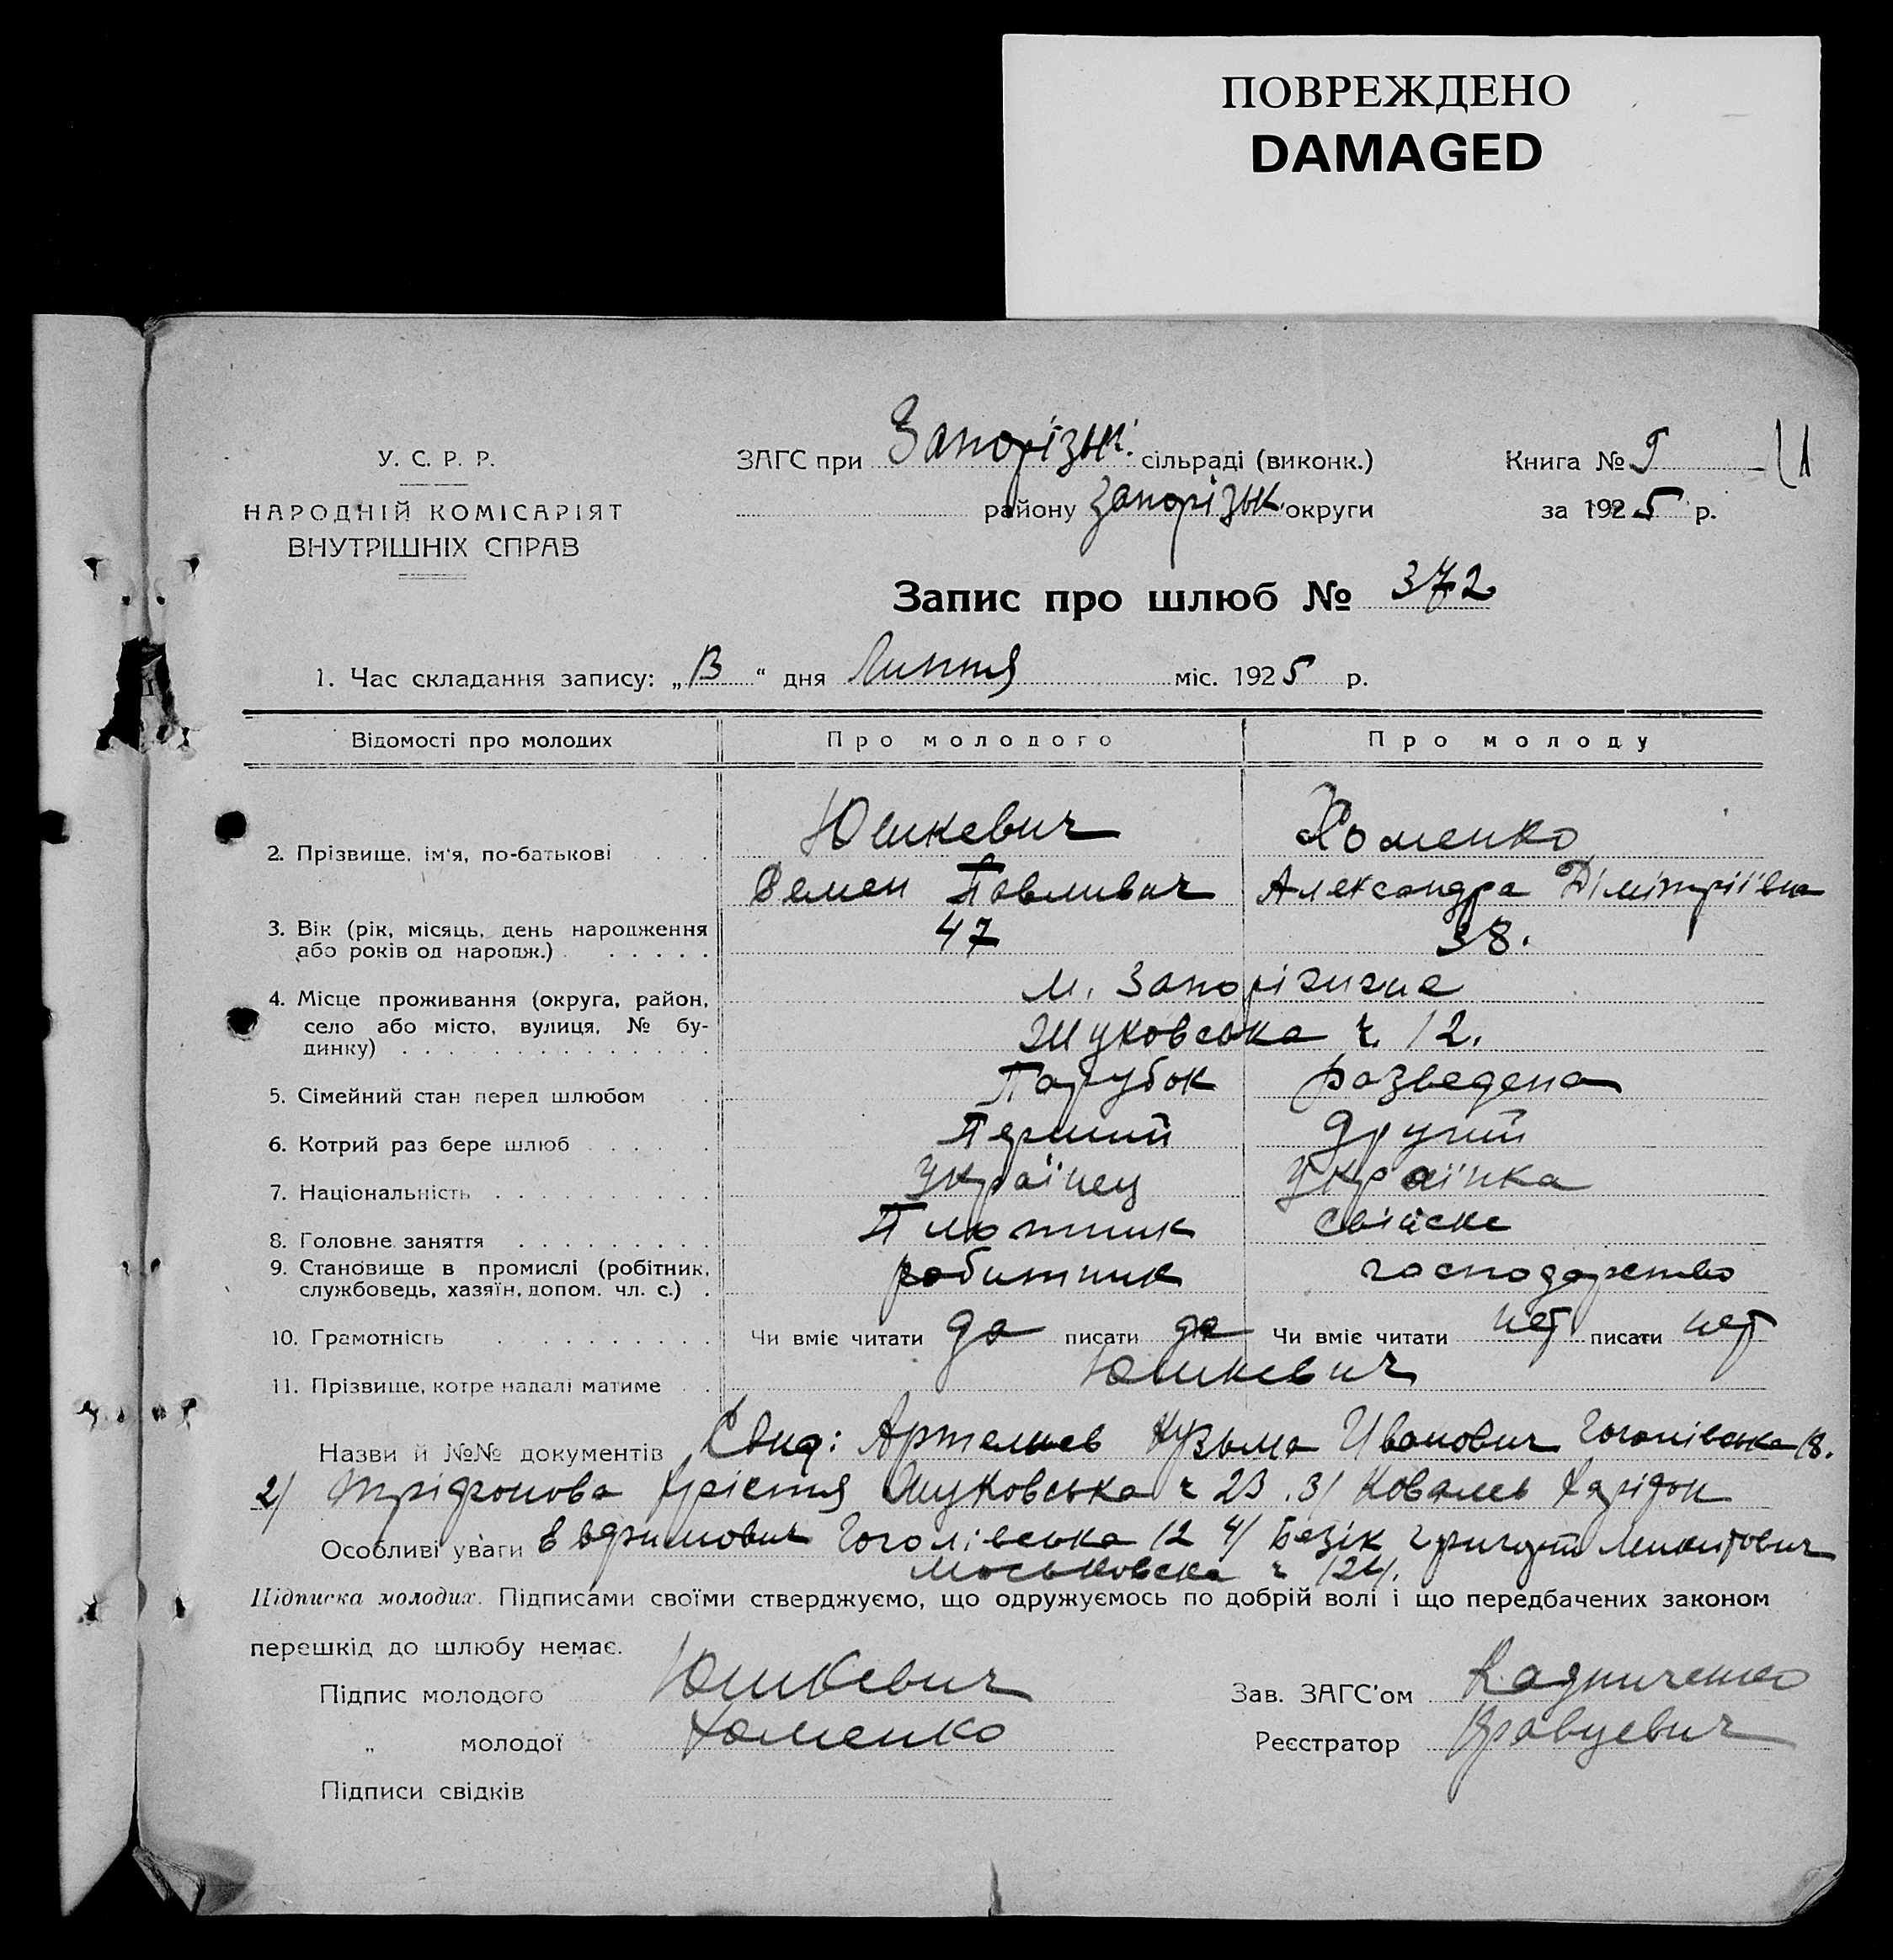 ПОВРЕЖДЕНО
DAMAGED
У. С. Р. Р.
НАРОДНІЙ КОМІСАРІЯТ
ВНУТРІШНІХ СПРАВ
ЗАГС при Запорізьк. сільраді (виконк.)
району Запорізьк округи
Книга №
за 1925 р.
Запис про шлюб № 372
1. Час складання запису: „13“ дня Липня міс. 1925 р.
Відомості про молодих Про молодого Про молоду
2. Прізвище, ім'я, по-батькові Юшкевич Хоменко
Семен Павливич Александра Дімітріівна
3. Вік (рік, місяць, день народження або років од народж.) 47 38.
4. Місце проживання (округа, район, село або місто, вулиця, № будинку) м. Запоріжжє
Жуковська ч. 12.
5. Сімейний стан перед шлюбом Парубок разведена
6. Котрий раз бере шлюб Перший другий
7. Національність Українец Українка
8. Головне заняття Плотник свійске
9. Становище в промислі (робітник, службовець, хазяїн, допом. чл. с.) робитник господарство
10. Грамотність Чи вміє читати да писати да Чи вміє читати нет писати нет
11. Прізвище, котре надалі матиме Юшкевич
Назви й №№ документів Свид: Кузьма Иванович 18.
2/ Трідронова Жуковська ч 23. 3/ Ковалев
Особливі уваги Гоголівська 12 4/ Безік Григорий Микитович
Московска ч 124.
Підписка молодих. Підписами своїми стверджуємо, що одружуємось по добрій волі і що передбачених законом
перешкід до шлюбу немає.
Підпис молодого Юшкевич
„ молодої Хоменко
Підписи свідків
Зав. ЗАГС'ом
Реєстратор Кравцевич